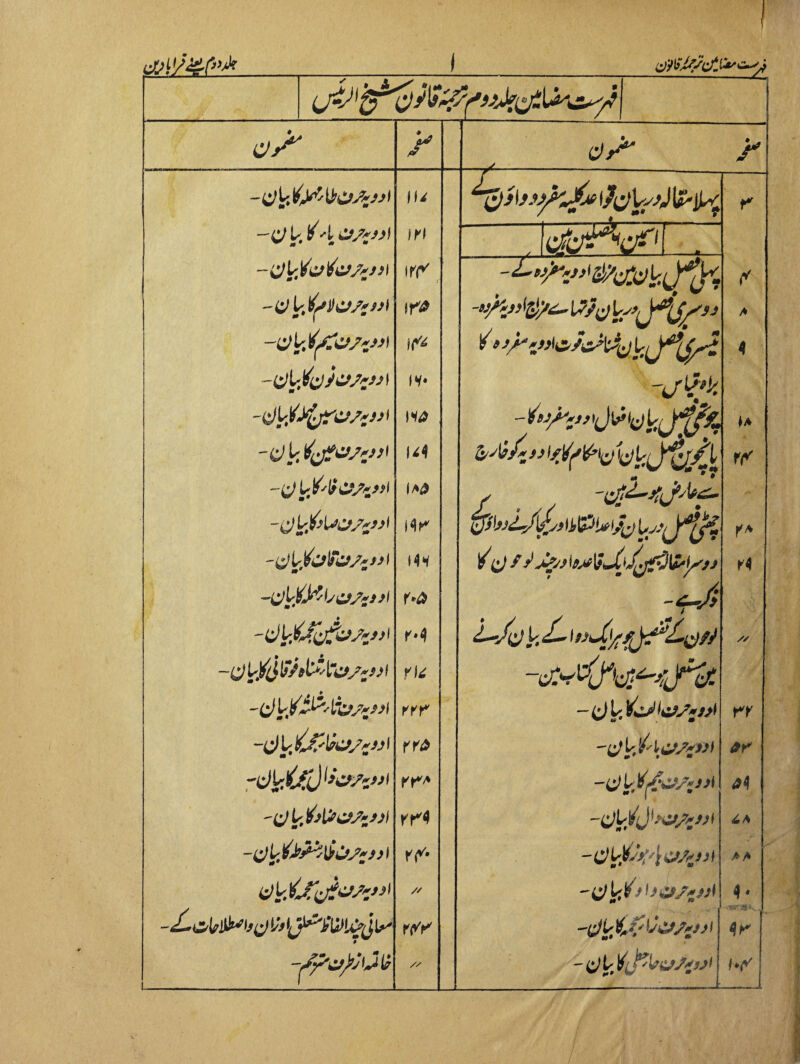 فہرست مضامین ترجمۂ قانون
۱
جلد دوم یعنے قرابادین
فہرست مضامین جلد دوم ترجمۂ قانون شیخ الرئیس
صفحہ مضمون
۳ پہلا مقالہ دربیان قواعد کلیہ مفردہ دواؤن کے
اسمین چھ فصلین ہین
۴ پہلی فصل بیان مین مزاج ادویہ مفردہ کے-
۸ دوسری فصل دربیان قوتہاے مزاج ادویہ مفردہ-
۹ تیسری فصل بیان شناخت قوت ادویہ مفردہ کا
براہ قیاس-
۱۸ چوتھی فصل بیان افعال ادویہ مفردہ کا-
۲۴ پانچوین فصل بیان اُن احکام کا جو ادویہ کو خارج
سے عارض ہوتے ہین-
۲۸ چھٹی فصل دربیان قواعد التقاط اور یکجا کرنے دواؤن
۲۹ دوسرا مقالہ جسمین کہ ایک قاعدہ اور چند لوحون کا
ذکر ہے-
〃 لوحون کے تفصیل جو ہر ایک دوا کے بیان کرنے
مین مستعمل ہوے ہین اصل کتاب مین-
۳۲ ادویہ حرف الف کا بیان-
۵۳ ادویہ حرف باء کا بیان-
۵۹ ادویہ حرف جیم کا بیان-
۷۸ ادویہ حرف دال کا بیان-
۸۸ ادویہ حرف ہاء ہوز کا بیان-
۹۰ ادویہ حرف واو کا بیان-
۹۳ ادویہ حرف زاء معجمہ کا بیان-
۱۰۴ ادویہ حرف حاء حطی کا بیان-
صفحہ مضمون
۱۱۷ ادویہ حرف طاء مہملہ کا بیان-
۱۲۱ ادویہ حرف یاء کا بیان-
۱۲۴ ادویہ حرف کاف کا بیان-
۱۳۵ ادویہ حرف لام کا بیان-
۱۴۷ ادویہ حرف میم کا بیان-
۱۶۰ ادویہ حرف نون کا بیان-
۱۶۵ ادویہ حرف سین مہملہ کا بیان-
۱۷۹ ادویہ حرف عین کا بیان-
۱۸۵ ادویہ حرف فاء کا بیان-
۱۹۳ ادویہ حرف صاد کا بیان-
۱۹۶ ادویہ حرف قاف کا بیان-
۲۰۵ ادویہ حرف راء مہملہ کا بیان-
۲۰۹ ادویہ حرف شین معجمہ کا بیان-
۲۱۷ ادویہ حرف تاء مثناۃ فوقانی کا بیان-
۲۲۳ ادویہ حرف ثاء مثلثہ کا بیان-
۲۲۵ ادویہ حرف خاء معجمہ کا بیان-
۲۳۸ ادویہ حرف ذال معجمہ کا بیان-
۲۳۹ ادویہ حرف ضاد کا بیان-
۲۴۰ ادویہ حرف ظاء منقوطہ کا بیان-
〃 ادویہ حرف غین معجمہ کا بیان
۲۴۳ معانی چند الفاظ متعلق اوزان و اصطلاحات کے-
〃 خاتمہ از طرف مترجم-